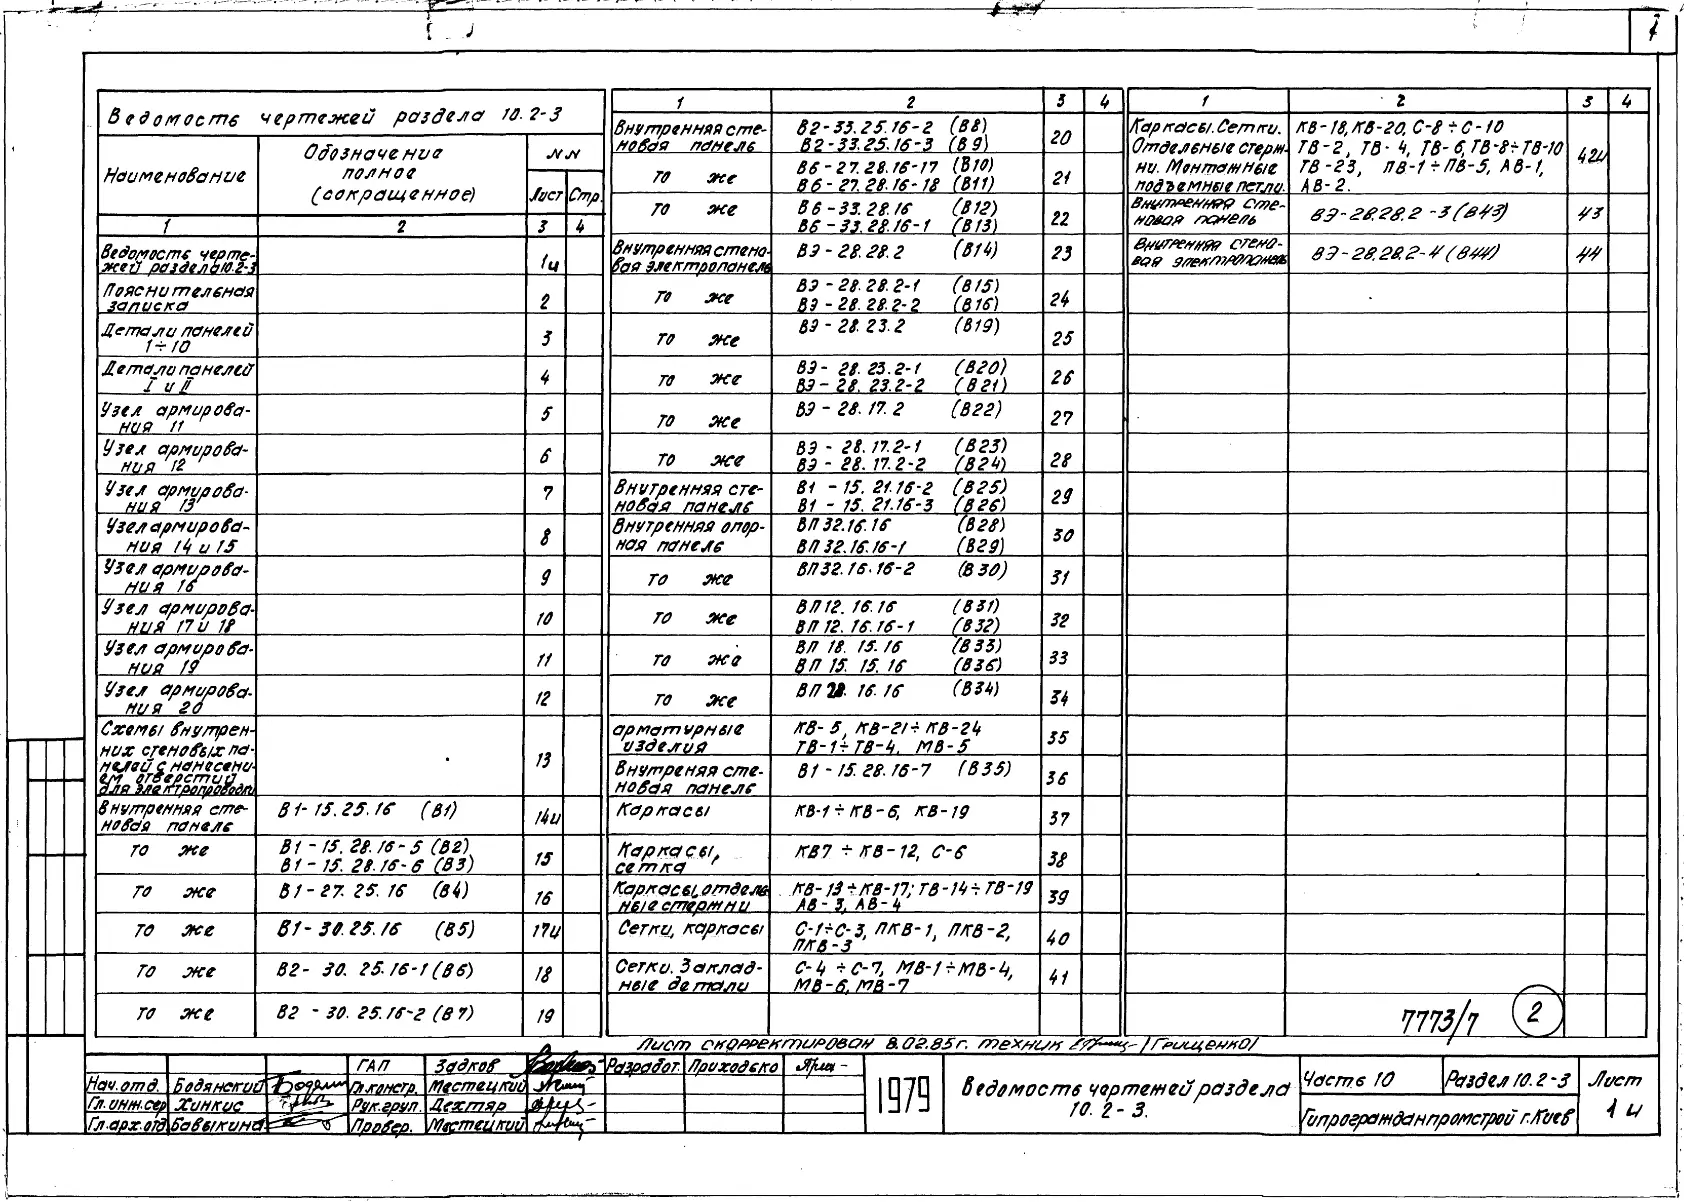 1
Ведомость чертежей раздела 10.2-3
Наименование
Обозначение
полное
(сокращенное)
NN
Лист Стр.
1 2 3 4
Ведомость черте-
жей раздела 10.2-3 1и
Пояснительная
записка 2
Детали панелей
1÷10 3
Детали панелей
I и II 4
Узел армирова-
ния 11 5
Узел армирова-
ния 12 6
Узел армирова-
ния 13 7
Узел армирова-
ния 14 и 15 8
Узел армирова-
ния 16 9
Узел армирова-
ния 17 и 18 10
Узел армирова-
ния 19 11
Узел армирова-
ния 20 12
Схемы внутрен-
них стеновых па-
нелей с нанесени-
ем отверстий
для электропроводки 13
Внутренняя сте- В1-15.25.16 (В1)
новая панель 14и
то же В1-15.28.16-5 (В2)
В1-15.28.16-6 (В3) 15
то же В1-27.25.16 (В4) 16
то же В1-30.25.16 (В5) 17и
то же В2-30.25.16-1 (В6) 18
то же В2-30.25.16-2 (В7) 19
1 2 3 4
Внутренняя сте- В2-33.25.16-2 (В8)
новая панель В2-33.25.16-3 (В9) 20
то же В6-27.28.16-17 (В10)
В6-27.28.16-18 (В11) 21
то же В6-33.28.16 (В12)
В6-33.28.16-1 (В13) 22
Внутренняя стено- ВЭ-28.28.2 (В14)
вая электропанель 23
то же ВЭ-28.28.2-1 (В15)
ВЭ-28.28.2-2 (В16) 24
то же ВЭ-28.23.2 (В19) 25
то же ВЭ-28.23.2-1 (В20)
ВЭ-28.23.2-2 (В21) 26
то же ВЭ-28.17.2 (В22) 27
то же ВЭ-28.17.2-1 (В23)
ВЭ-28.17.2-2 (В24) 28
Внутренняя сте- В1-15.21.16-2 (В25)
новая панель В1-15.21.16-3 (В26) 29
Внутренняя опор- ВП32.16.16 (В28)
ная панель ВП32.16.16-1 (В29) 30
то же ВП32.16.16-2 (В30) 31
то же ВП12.16.16 (В31)
ВП12.16.16-1 (В32) 32
то же ВП 18.15.16 (В33)
ВП 15.15.16 (В36) 33
то же ВП 28.16.16 (В34) 34
арматурные КВ-5, КВ-21÷КВ-24
изделия ТВ-1÷ТВ-4, МВ-5 35
Внутреняя сте- В1-15.28.16-7 (В35)
новая панель 36
Каркасы КВ-1÷КВ-6, КВ-19 37
Каркасы, КВ7÷КВ-12, С-6
сетка 38
Каркасы, отдель- КВ-13÷КВ-17; ТВ-14÷ТВ-19
ные стержни АВ-3, АВ-4 39
Сетки, каркасы С-1÷С-3, ПКВ-1, ПКВ-2,
ПКВ-3 40
Сетки. Заклад- С-4÷С-7, МВ-1÷МВ-4,
ные детали МВ-6, МВ-7 41
1 2 3 4
Каркасы. Сетки. КВ-18, КВ-20, С-8÷С-10
Отдельные стерж- ТВ-2, ТВ-4, ТВ-6, ТВ-8÷ТВ-10
ни. Монтажные ТВ-23, ПВ-1÷ПВ-5, АВ-1,
подъемные петли. АВ-2. 42и
Внутренняя сте-
новая панель ВЭ-28.28.2-3 (В43) 43
Внутренняя стено-
вая электропанель ВЭ-28.28.2-4 (В44) 44
7773/7 2
Лист скорректирован 8.02.85г. техник /Грищенко/
ГАП Задков Разработ. Приходько
Нач.отд. Бодянский Гл.констр. Местецкий
Гл.инж.сер Хинкис Рук.груп. Дехтяр
Гл.арх.отд Бабыкина Провер. Местецкий
1979
Ведомость чертежей раздела
10.2-3.
Часть 10 Раздел 10.2-3 Лист
Гипрогражданпромстрой г.Киев 1и